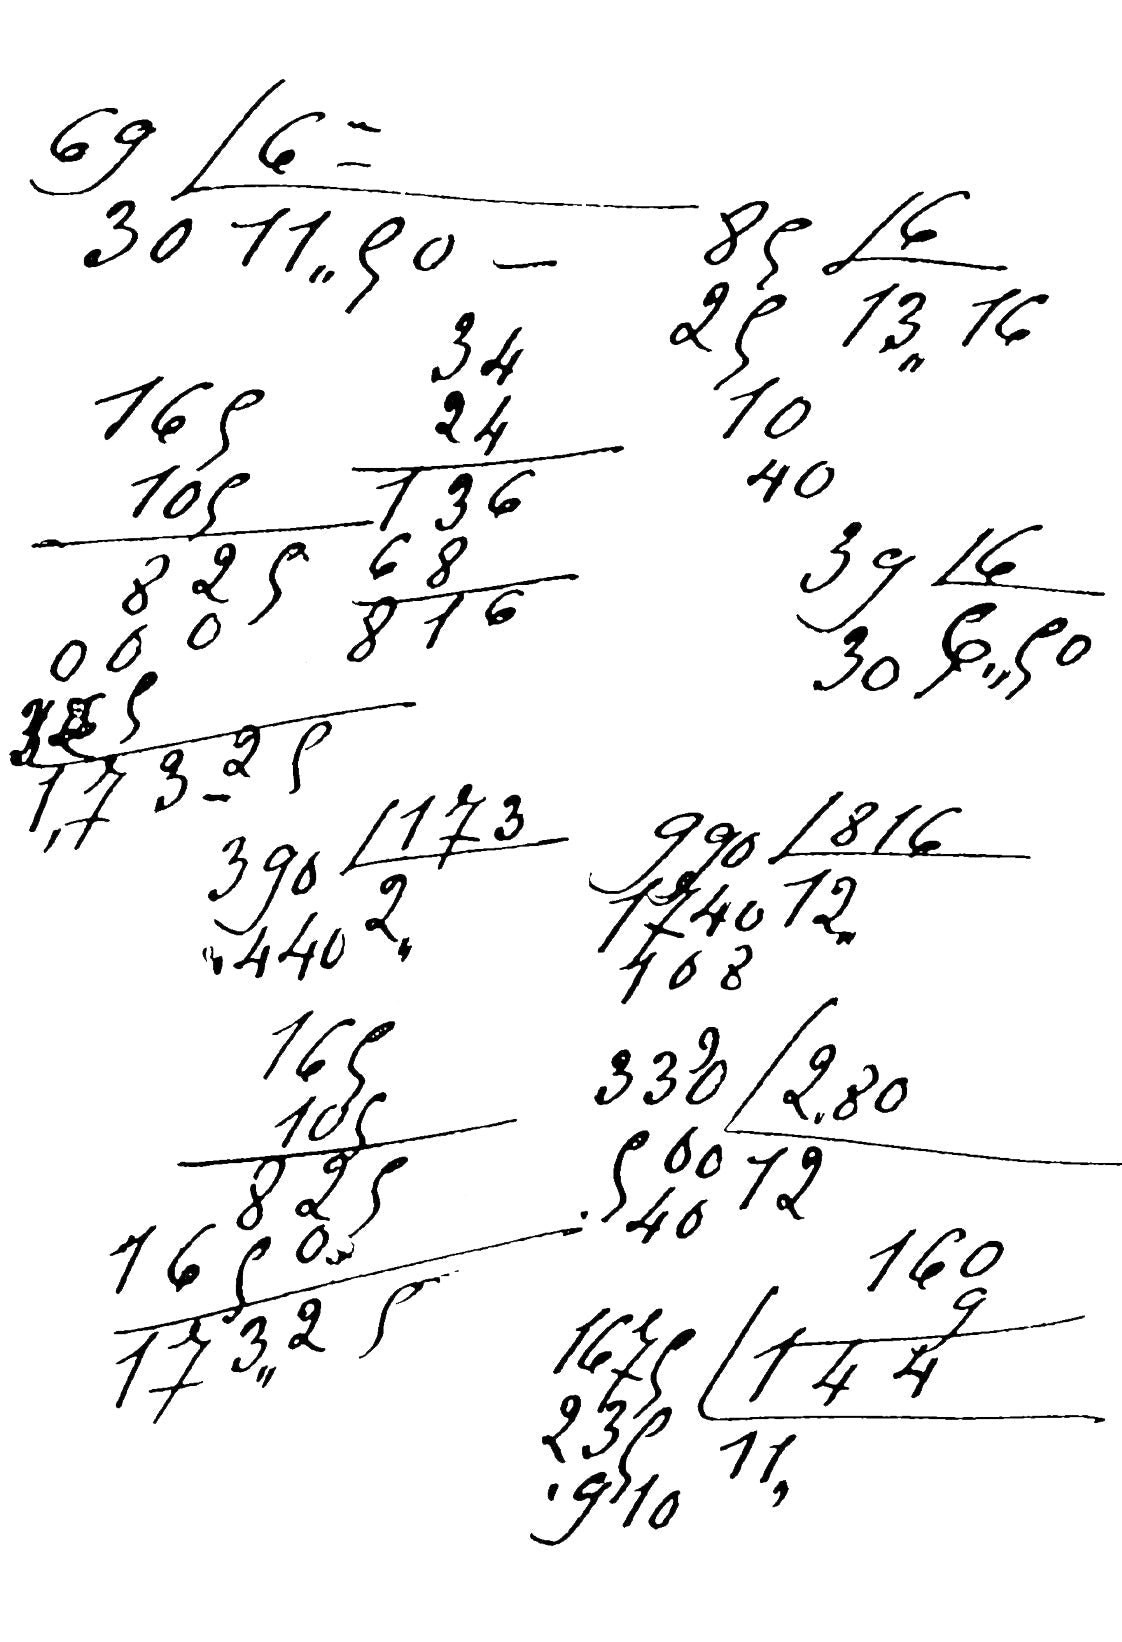 69 6 =
30 11,,50 —
85 6
25 13,, 16
10
40
34
24
136
68
816
165
105
825
000
5
1,73-25
39 6
30 6,,50
390 173
440 2,,
990 816
1740 12,,
108
165
105
825
1650
173,,25
330 2.80
500 12
40
160
9
1675 144
235 11,
910